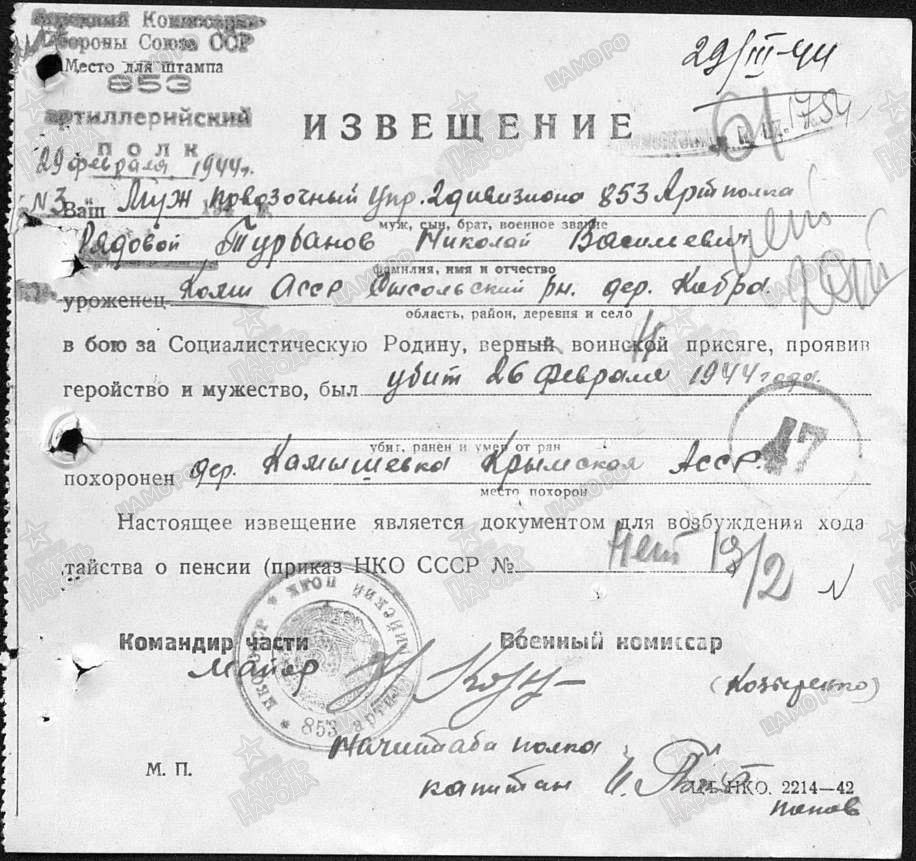 Народный Комиссариат
Обороны Союза ССР
Место для штампа
853
артиллерийский
полк
29 февраля 1944г.
N 3
29/III-44
61
1754
ИЗВЕЩЕНИЕ
Ваш Муж повозочный Упр. 2 дивизиона 853 Артполка
муж, сын, брат, военное звание
Рядовой Турбанов Николай Васильевич
фамилия, имя и отчество
уроженец Коми АССР Сысольский рн. дер. Кибра.
область, район, деревня и село
нет
в бою за Социалистическую Родину, верный воинской присяге, проявив
геройство и мужество, был убит 26 февраля 1944 года.
убит, ранен и умер от ран
47
похоронен дер. Камышевка Крымской АССР.
место похорон
Настоящее извещение является документом для возбуждения хода
тайства о пенсии (приказ НКО СССР №
Нет 19/2
Командир части Военный комиссар
Майор
(Козыренко)
НКО СССР * 853 артиллерийский полк *
Начштаба полка
капитан
М. П.
НКО. 2214—42
попов
ЦАМО.РФ
ПАМЯТЬ НАРОДА